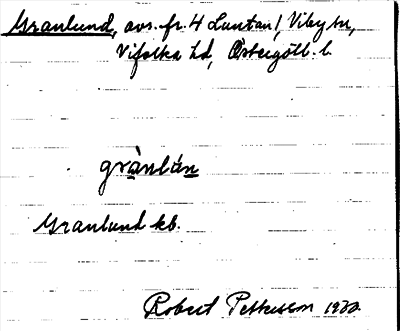 Granlund, avs. fr. 4 Luntan 1, Viby sn,
Vifolka hd, Östergötl. l.
grànlún
Granlund kb.
Robert Pettersson 1932.